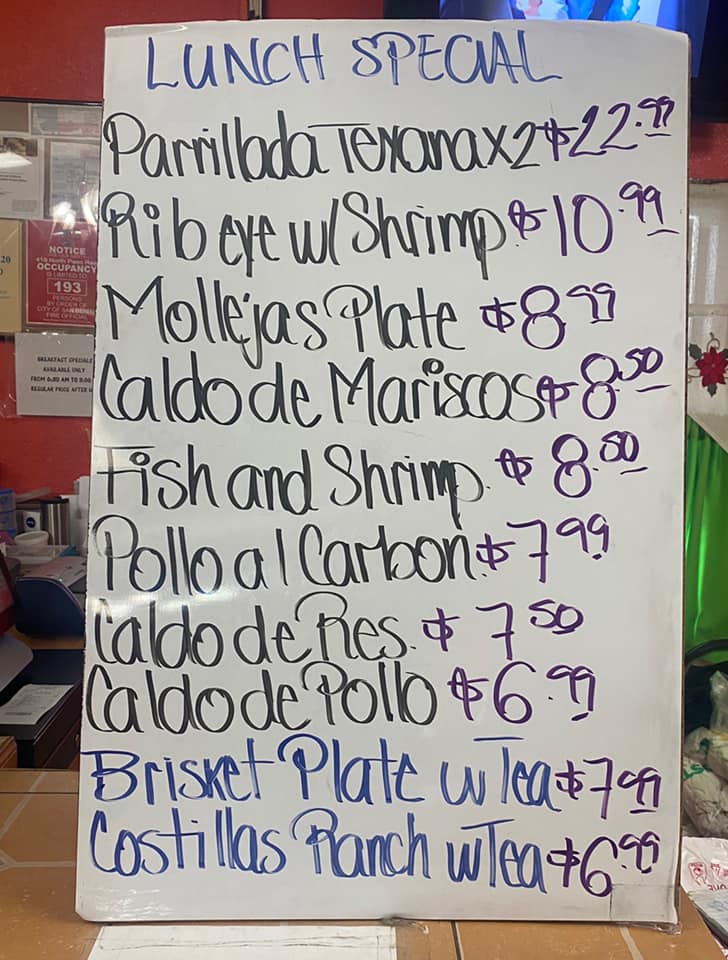 LUNCH SPECIAL
Parrillada Texana x2 $22.99
Rib eye w/ Shrimp $10.99
Mollejas Plate $8.99
Caldo de Mariscos $8.50
Fish and Shrimp. $8.50
Pollo al Carbon $7.99
Caldo de Res. $7.50
Caldo de Pollo $6.99
Brisket Plate w Tea $7.99
Costillas Ranch w Tea $6.99
NOTICE
OCCUPANCY
IS LIMITED TO
193
PERSONS
BY ORDER OF
CITY OF SAN
FIRE OFFICIAL
BREAKFAST SPECIALS
AVAILABLE ONLY
FROM 6:30 AM TO
REGULAR PRICE AFTER